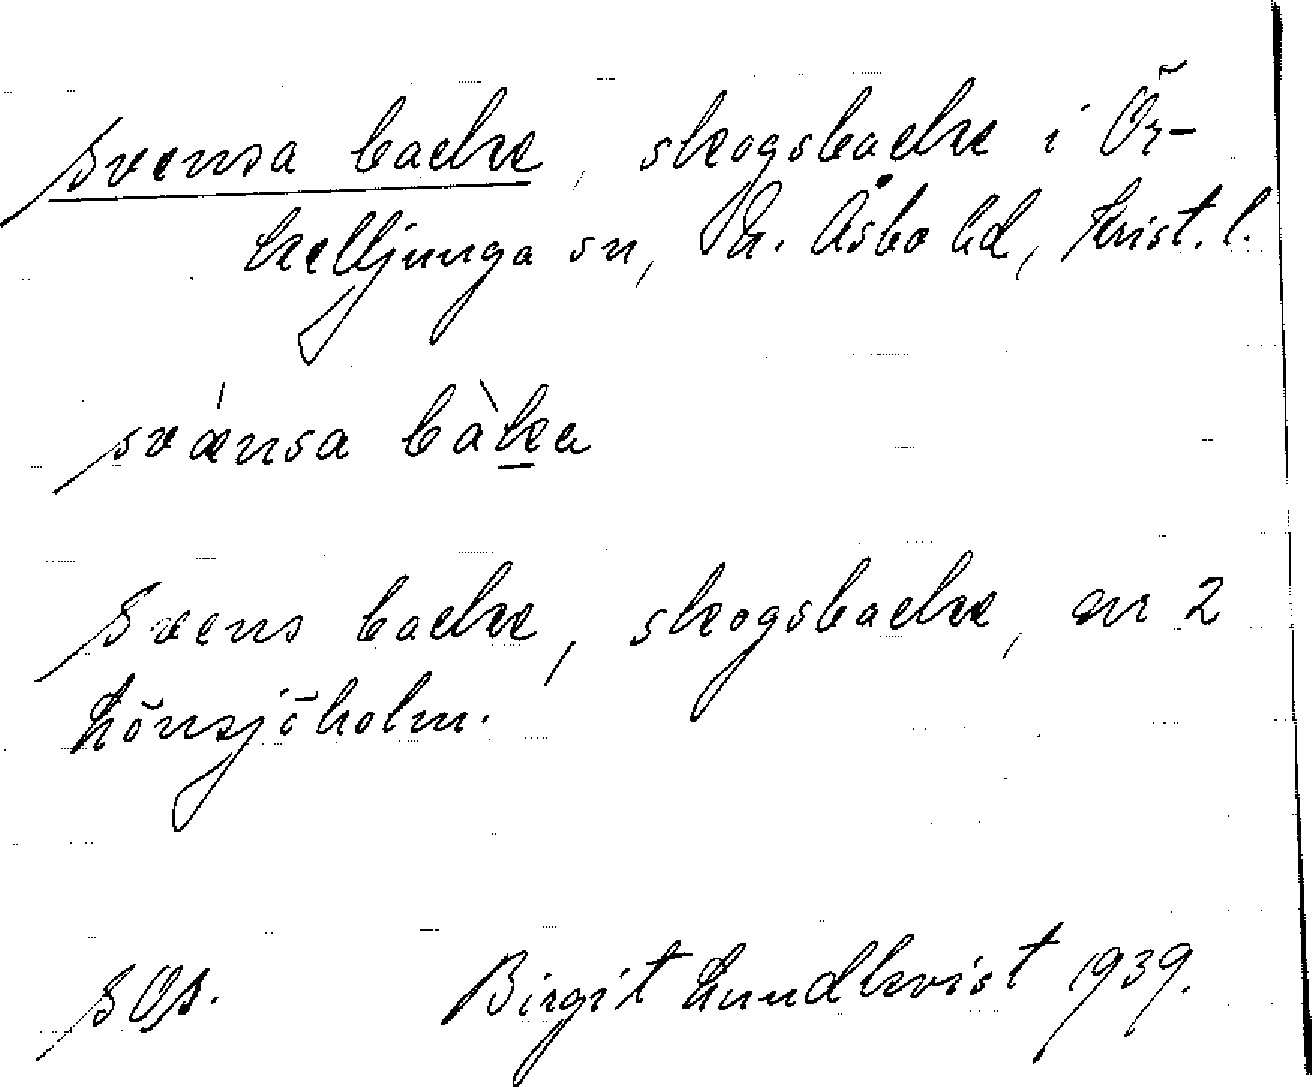 Svensa backe, skogsbacke i Ör-
kelljunga sn, N. Åsbo hd, Krist. l.
svænsa bàka
Svens backe, skogsbacke, nr 2
Lönsjöholm.
SOs. Birgit Lundkvist 1939.